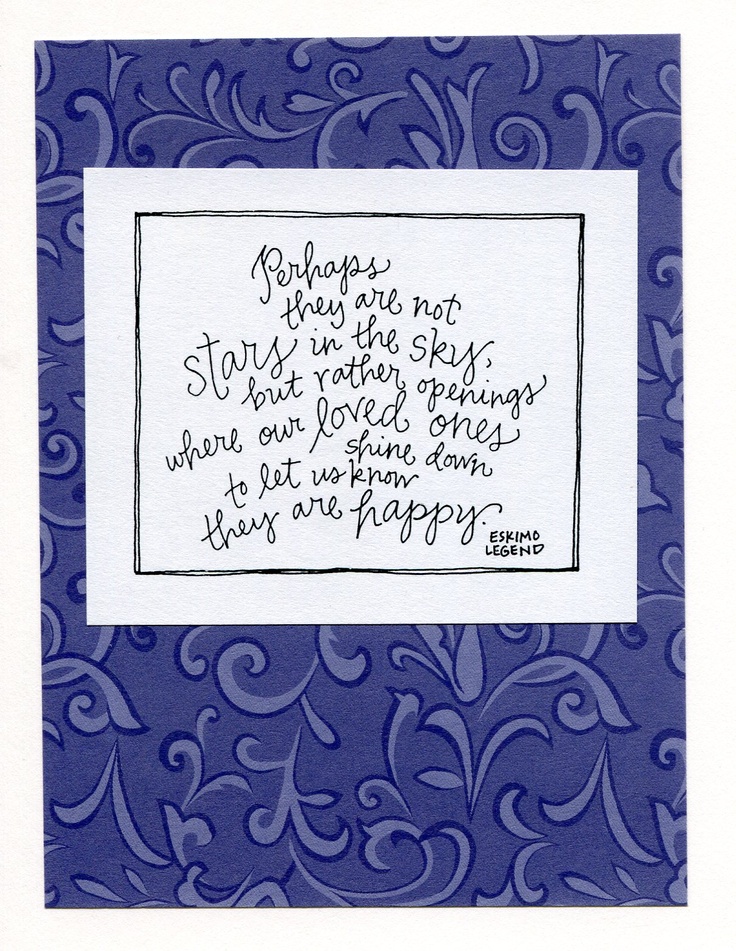 Perhaps
they are not
stars in the sky,
but rather openings
where our loved ones
shine down
to let us know
they are happy.
ESKIMO
LEGEND